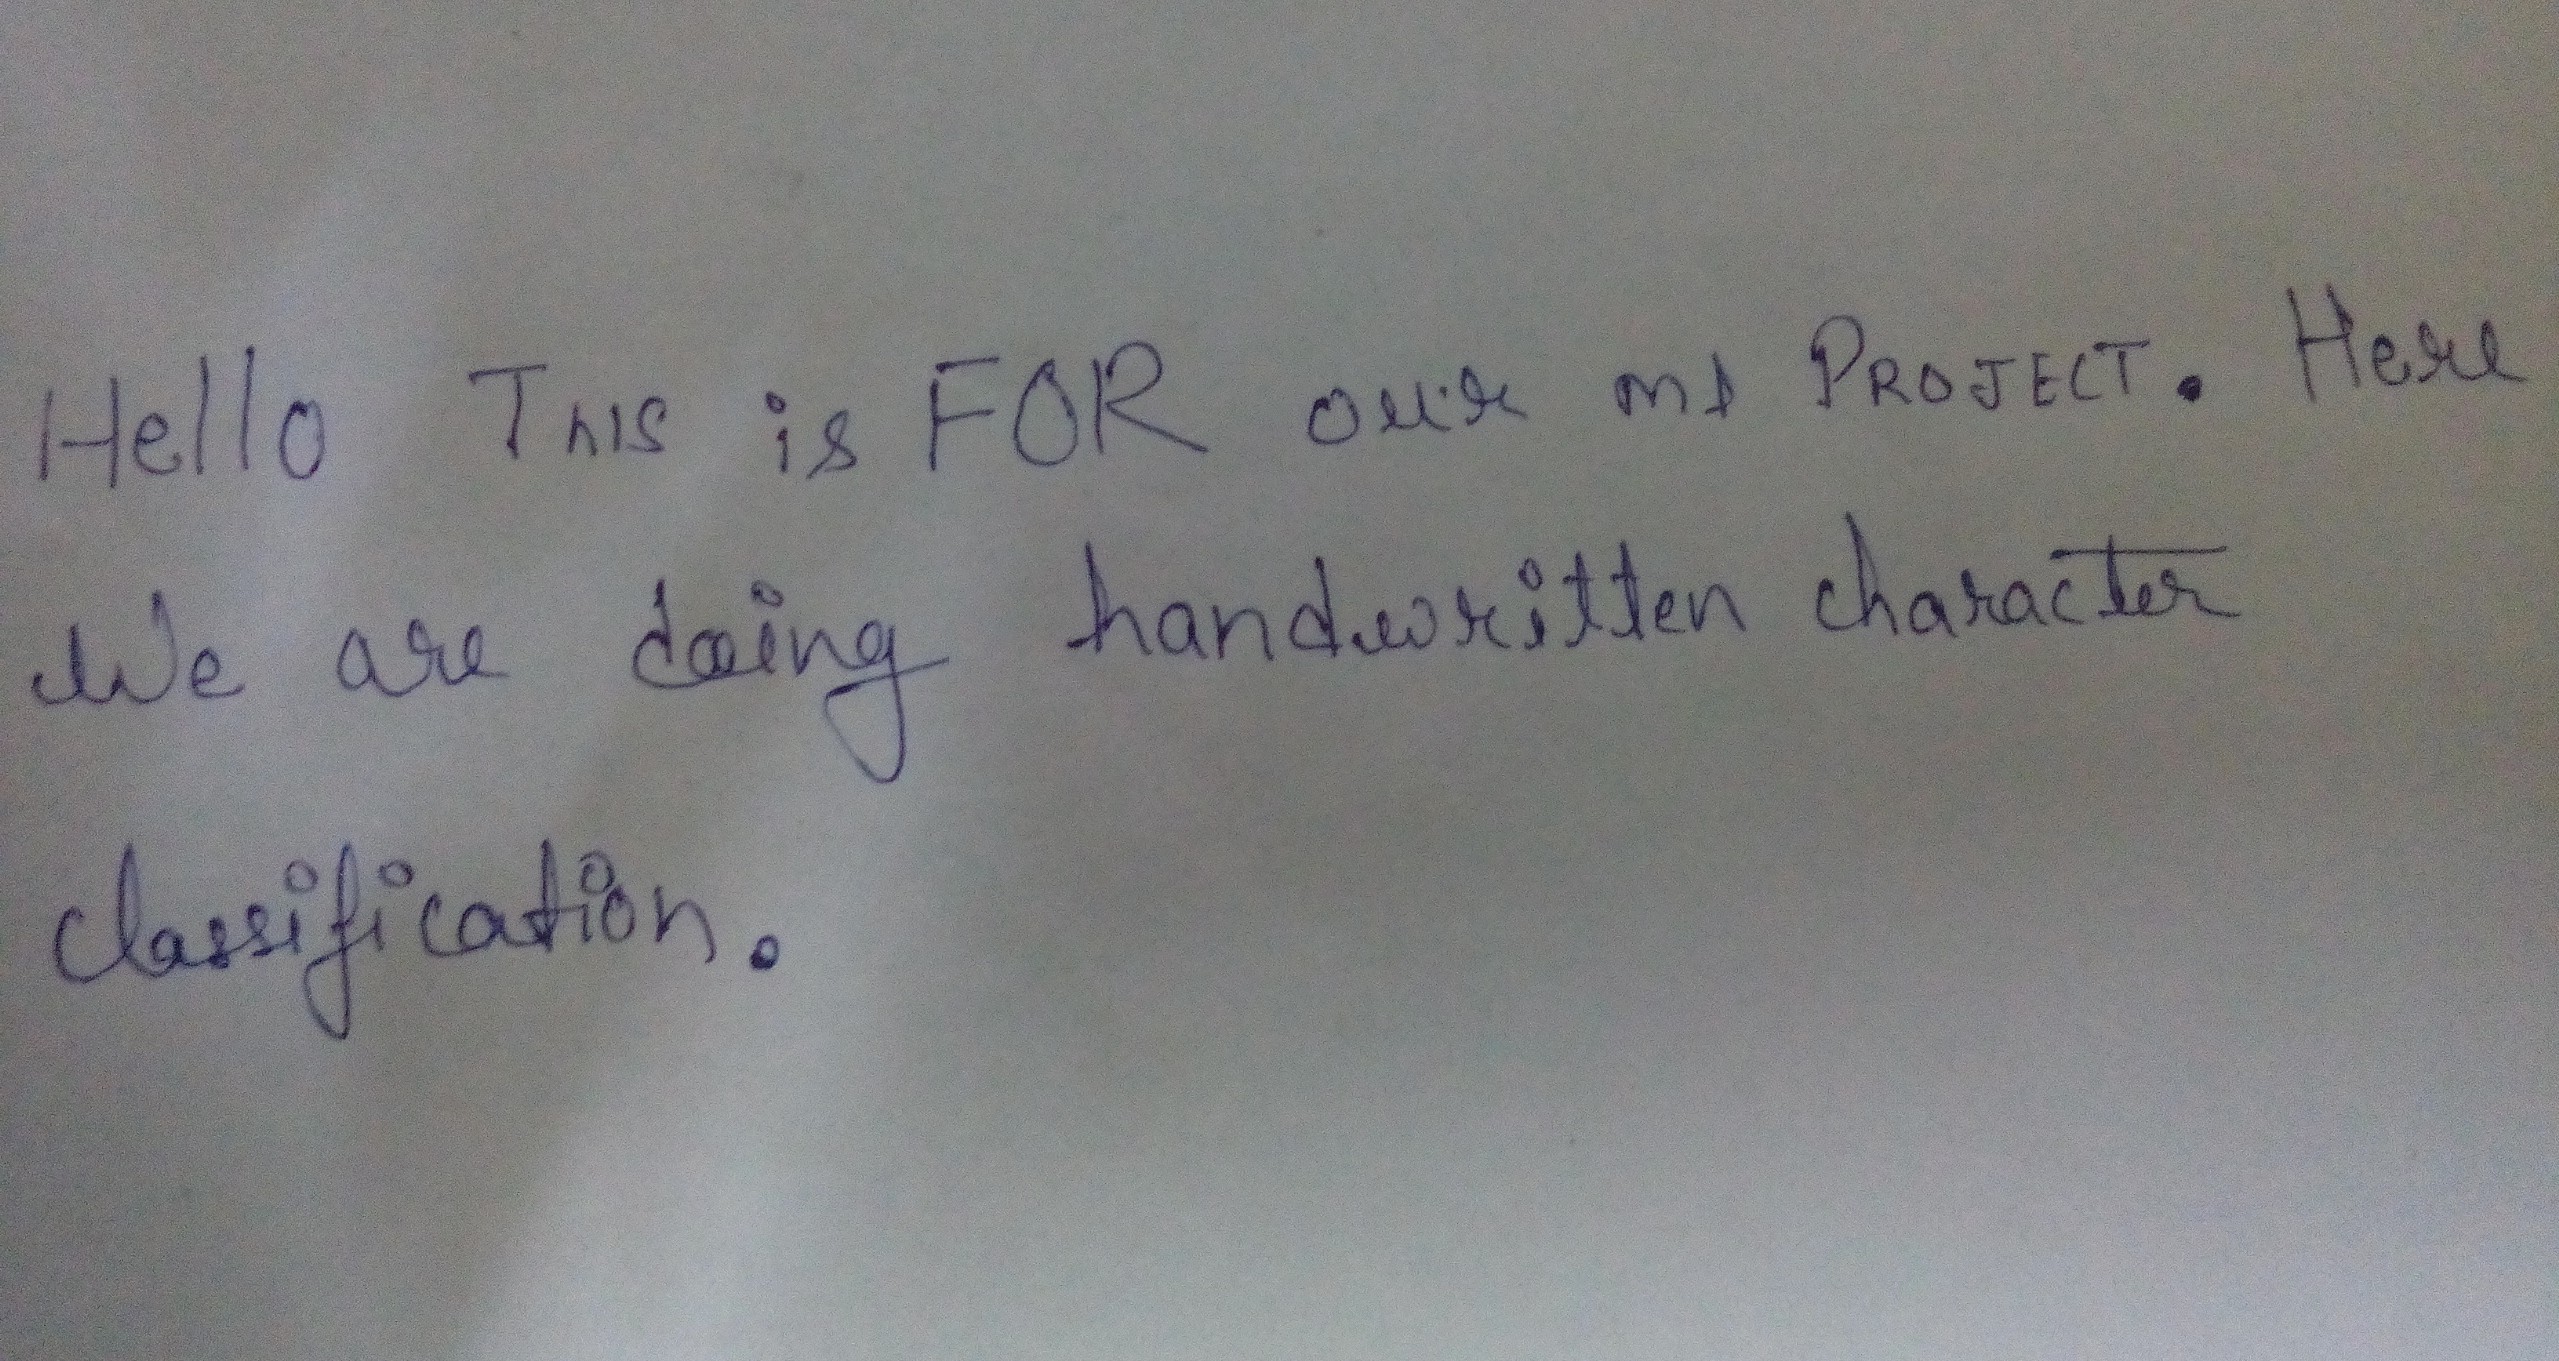 Hello This is FOR our ml PROJECT. Here
We are doing handwritten character
classification.